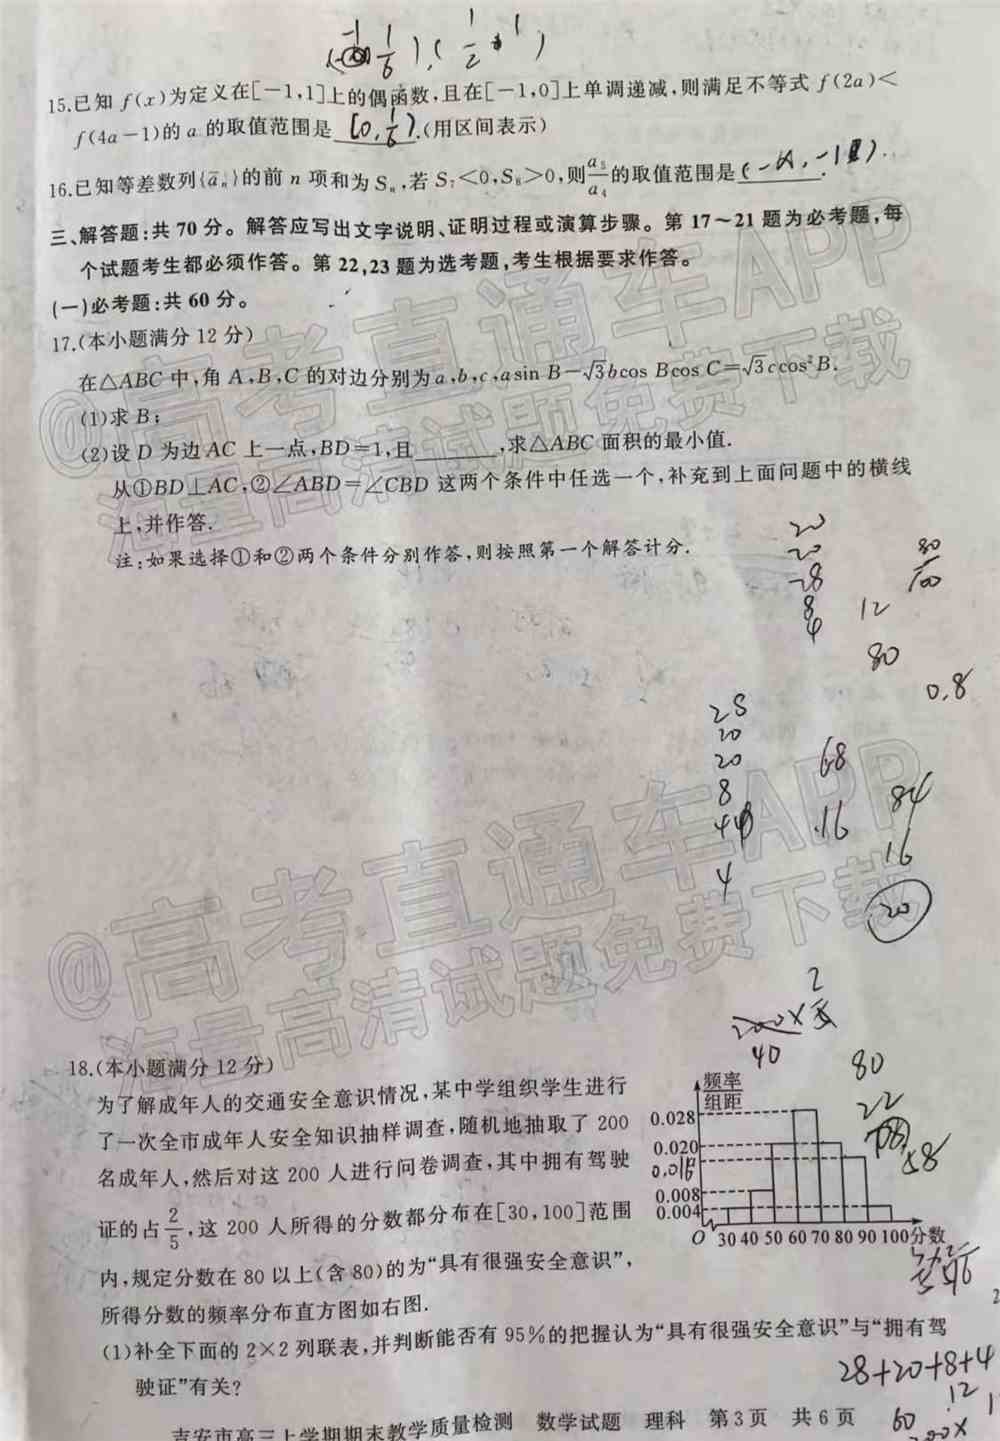 15.已知 f(x)为定义在[−1,1]上的偶函数,且在[−1,0]上单调递减,则满足不等式 f(2a)<
f(4a−1)的 a 的取值范围是 [0,1/6).(用区间表示)
16.已知等差数列{aₙ}的前 n 项和为 Sₙ,若 S₇<0,S₈>0,则a₅/a₄的取值范围是
三、解答题:共 70 分。解答应写出文字说明、证明过程或演算步骤。第 17~21 题为必考题,每
个试题考生都必须作答。第 22,23 题为选考题,考生根据要求作答。
(一)必考题:共 60 分。
17.(本小题满分 12 分)
在△ABC 中,角 A,B,C 的对边分别为 a,b,c,asin B−√3bcos Bcos C=√3ccos²B.
(1)求 B;
(2)设 D 为边 AC 上一点,BD=1,且 ,求△ABC 面积的最小值.
从①BD⊥AC,②∠ABD=∠CBD 这两个条件中任选一个,补充到上面问题中的横线
上,并作答.
注:如果选择①和②两个条件分别作答,则按照第一个解答计分.
20
20
28
8
4
12
80
80/100
0.8
28
20
20
8
4
68
16
84
16
20
@高考直通车APP
海量高清试题免费下载
@高考直通车APP
海量高清试题免费下载
200×2/5
40
80
22
18.(本小题满分 12 分)
为了解成年人的交通安全意识情况,某中学组织学生进行
了一次全市成年人安全知识抽样调查,随机地抽取了 200
名成年人,然后对这 200 人进行问卷调查,其中拥有驾驶
证的占2/5,这 200 人所得的分数都分布在[30,100]范围
内,规定分数在 80 以上(含 80)的为“具有很强安全意识”,
所得分数的频率分布直方图如右图.
频率
组距
0.028
0.020
0.016
0.008
0.004
O 30 40 50 60 70 80 90 100分数
(1)补全下面的 2×2 列联表,并判断能否有 95%的把握认为“具有很强安全意识”与“拥有驾
驶证”有关?
28+20+8+4
12
60
吉安市高三上学期期末教学质量检测 数学试题 理科 第3页 共6页